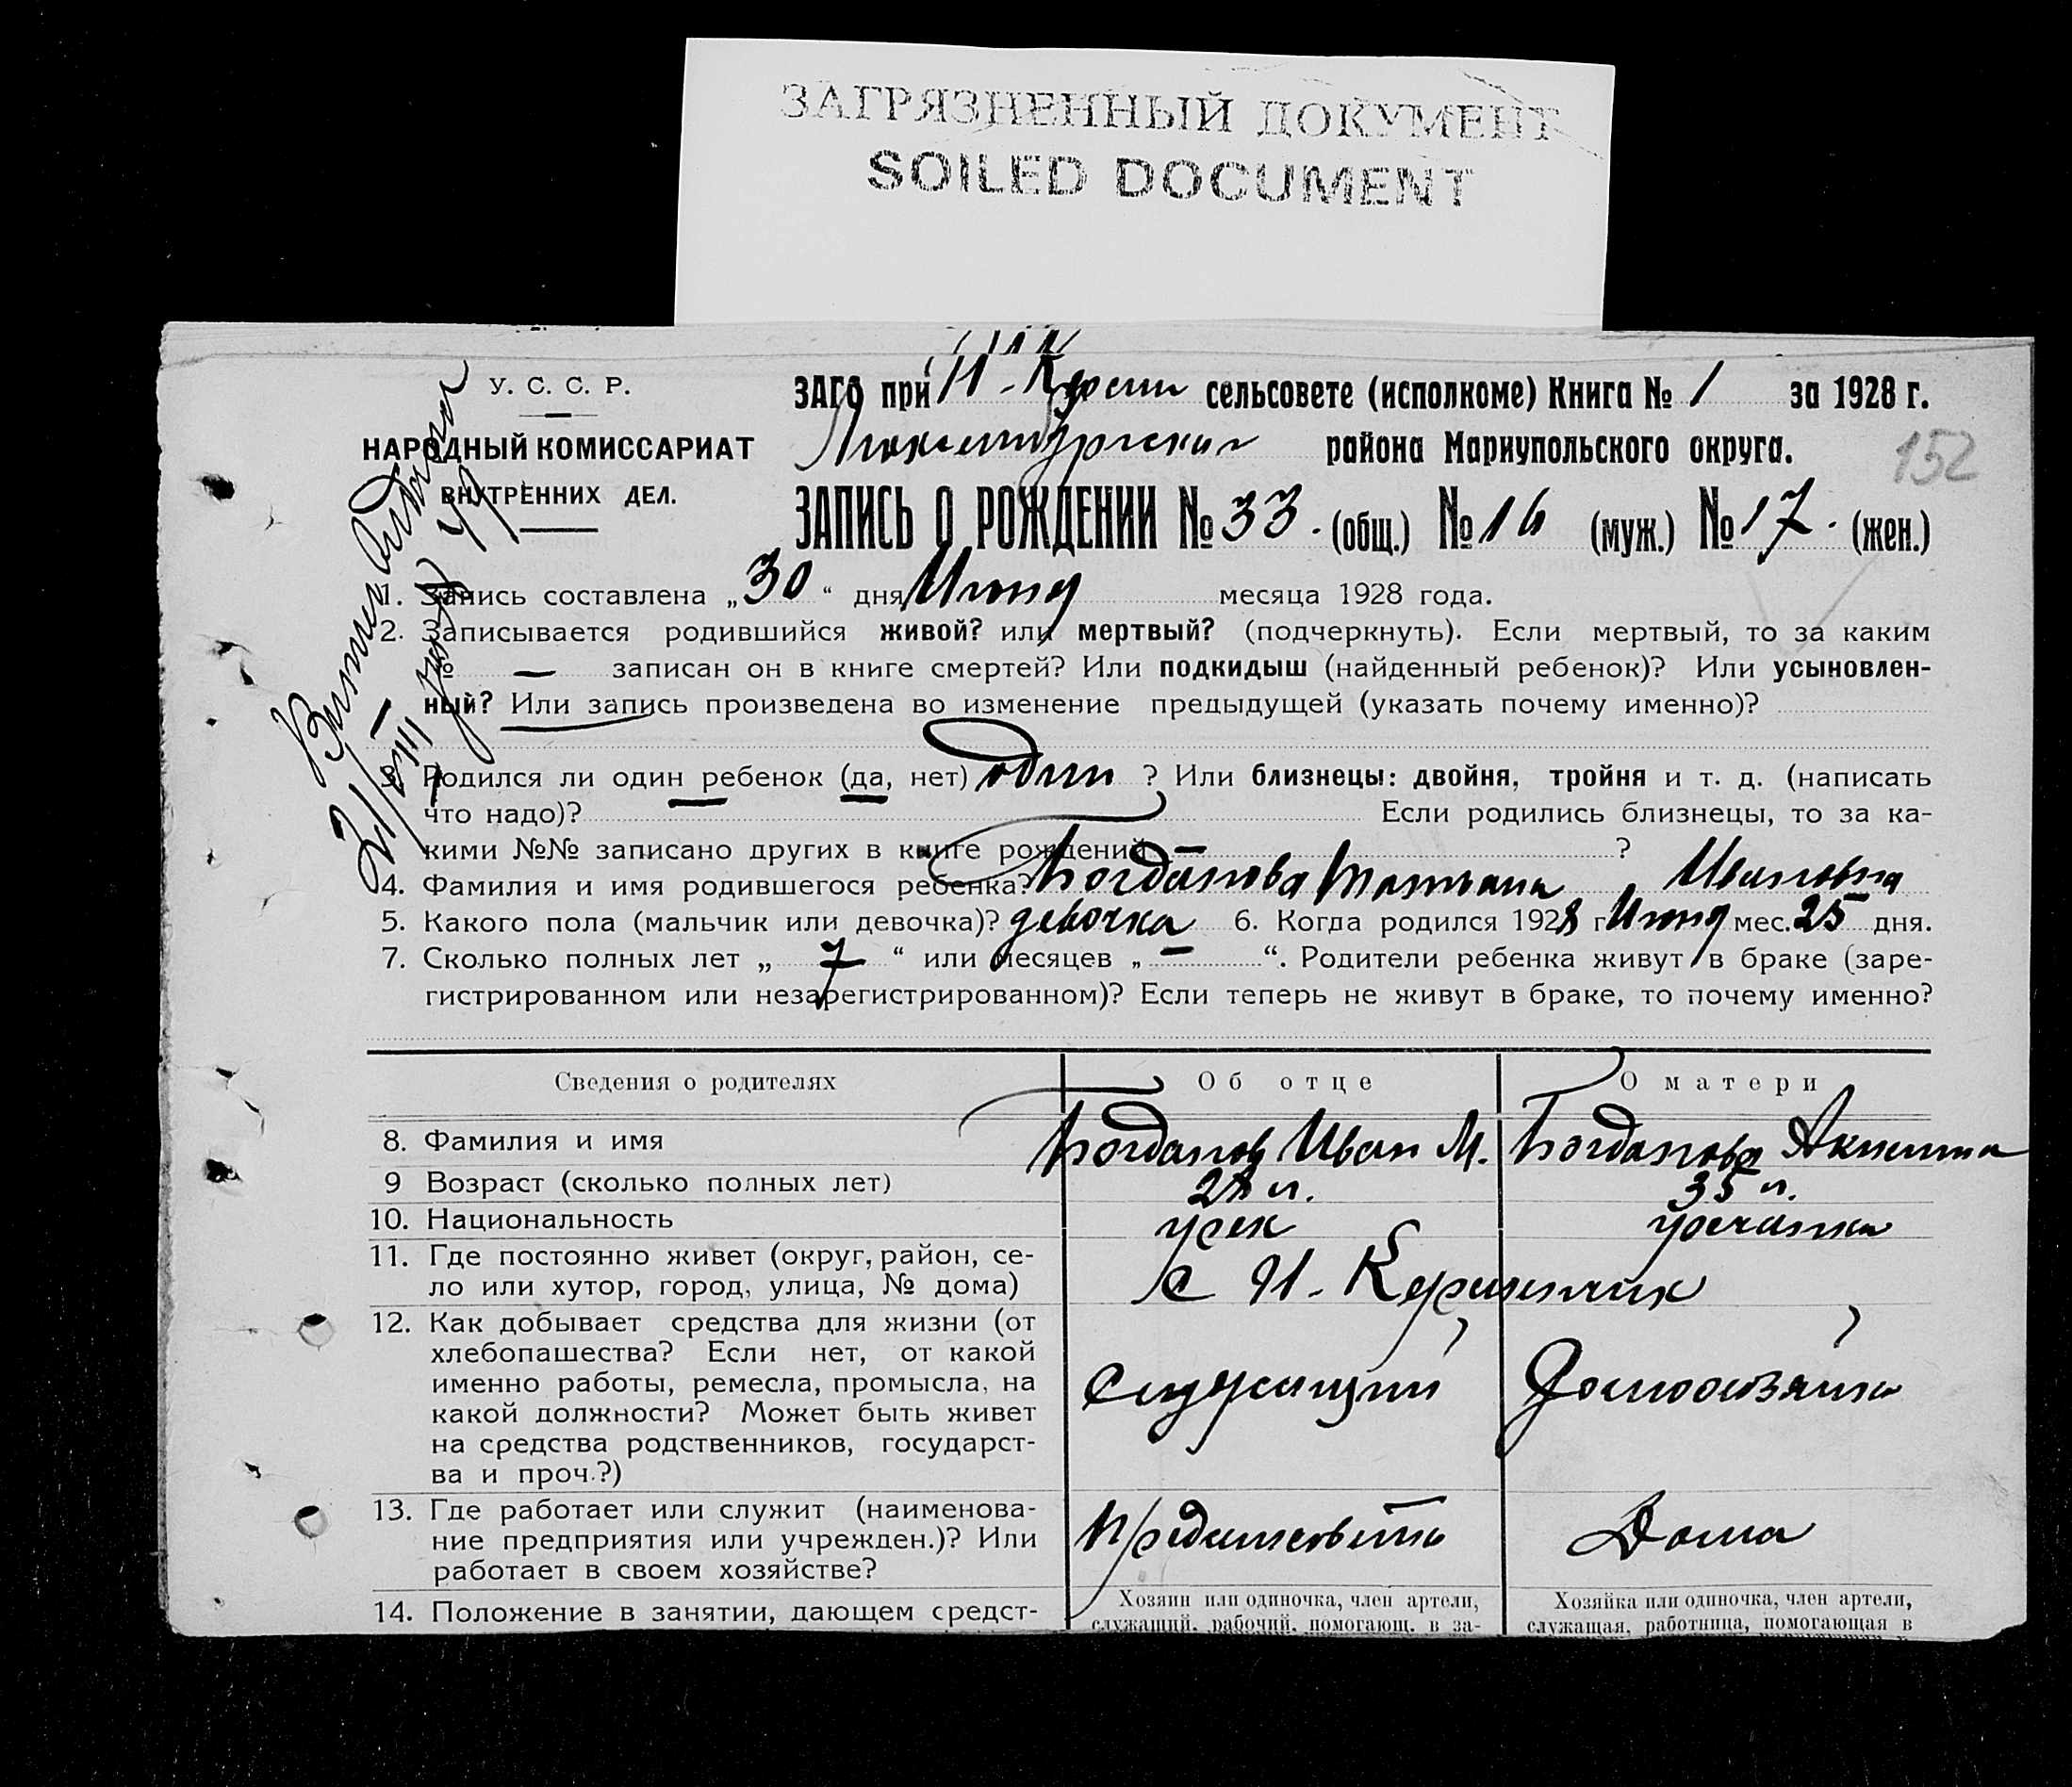 ЗАГРЯЗНЕННЫЙ ДОКУМЕНТ
SOILED DOCUMENT
У. С. С. Р.
НАРОДНЫЙ КОМИССАРИАТ
ВНУТРЕННИХ ДЕЛ.
ЗАГС при Н-Керм сельсовете (исполкоме) Книга № 1 за 1928 г.
района Мариупольского округа.
152
ЗАПИСЬ О РОЖДЕНИИ № 33. (общ.) № 16 (муж.) № 17. (жен.)
1. Запись составлена „30“ дня Июня месяца 1928 года.
2. Записывается родившийся живой? или мертвый? (подчеркнуть). Если мертвый, то за каким
№ — записан он в книге смертей? Или подкидыш (найденный ребенок)? Или усыновлен-
ный? Или запись произведена во изменение предыдущей (указать почему именно)?
3. Родился ли один ребенок (да, нет) один ? Или близнецы: двойня, тройня и т. д. (написать
что надо)? Если родились близнецы, то за ка-
кими №№ записано других в книге рождений — ?
4. Фамилия и имя родившегося ребенка? Богданова Татьяна Ивановна
5. Какого пола (мальчик или девочка)? девочка 6. Когда родился 1928 г Июня мес. 25 дня.
7. Сколько полных лет „ 7 “ или месяцев „ — “. Родители ребенка живут в браке (заре-
гистрированном или незарегистрированном)? Если теперь не живут в браке, то почему именно?
Сведения о родителях Об отце О матери
8. Фамилия и имя Богданов Иван М. Богданова Акилина
9 Возраст (сколько полных лет) 28 л. 35 л.
10. Национальность грек гречанка
11. Где постоянно живет (округ, район, се-
ло или хутор, город, улица, № дома) С Н-Керменчик
12. Как добывает средства для жизни (от
хлебопашества? Если нет, от какой
именно работы, ремесла, промысла, на
какой должности? Может быть живет
на средства родственников, государст-
ва и проч.?)
Служащий Домохозяйка
13. Где работает или служит (наименова-
ние предприятия или учрежден.)? Или
работает в своем хозяйстве?
Дома
14. Положение в занятии, дающем средст-
Хозяин или одиночка, член артели,
служащий, рабочий, помогающ. в за-
Хозяйка или одиночка, член артели,
служащая, работница, помогающая в